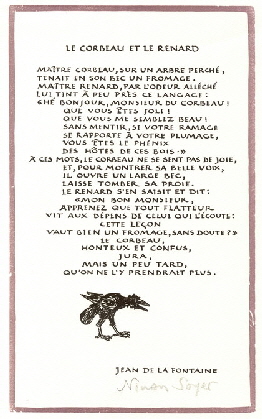 LE CORBEAU ET LE RENARD
MAÎTRE CORBEAU, SUR UN ARBRE PERCHÉ,
TENAIT EN SON BEC UN FROMAGE.
MAÎTRE RENARD, PAR L'ODEUR ALLÉCHÉ
LUI TINT À PEU PRÈS CE LANGAGE:
«HÉ BONJOUR, MONSIEUR DU CORBEAU!
QUE VOUS ÊTES JOLI!
QUE VOUS ME SEMBLEZ BEAU!
SANS MENTIR, SI VOTRE RAMAGE
SE RAPPORTE À VOTRE PLUMAGE,
VOUS ÊTES LE PHÉNIX
DES HÔTES DE CES BOIS.»
À CES MOTS, LE CORBEAU NE SE SENT PAS DE JOIE,
ET, POUR MONTRER SA BELLE VOIX,
IL OUVRE UN LARGE BEC,
LAISSE TOMBER SA PROIE.
LE RENARD S'EN SAISIT ET DIT:
«MON BON MONSIEUR,
APPRENEZ QUE TOUT FLATTEUR
VIT AUX DÉPENS DE CELUI QUI L'ÉCOUTE:
CETTE LEÇON
VAUT BIEN UN FROMAGE, SANS DOUTE?»
LE CORBEAU,
HONTEUX ET CONFUS,
JURA,
MAIS UN PEU TARD,
QU'ON NE L'Y PRENDRAIT PLUS.
JEAN DE LA FONTAINE